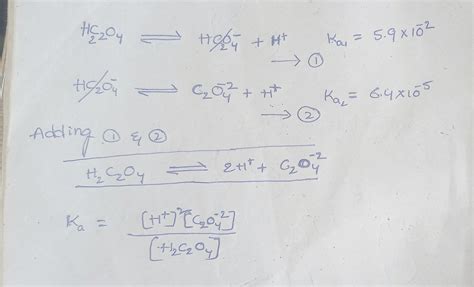 HC₂O₄ ⇌ HC₂O₄⁻ + H⁺ Ka₁ = 5.9×10⁻²
→ ①
HC₂O₄⁻ ⇌ C₂O₄⁻² + H⁺ Ka₂ = 6.4×10⁻⁵
→ ②
Adding ① & ②
H₂C₂O₄ ⇌ 2H⁺ + C₂O₄⁻²
Ka = [H⁺]²[C₂O₄⁻²]
[H₂C₂O₄]